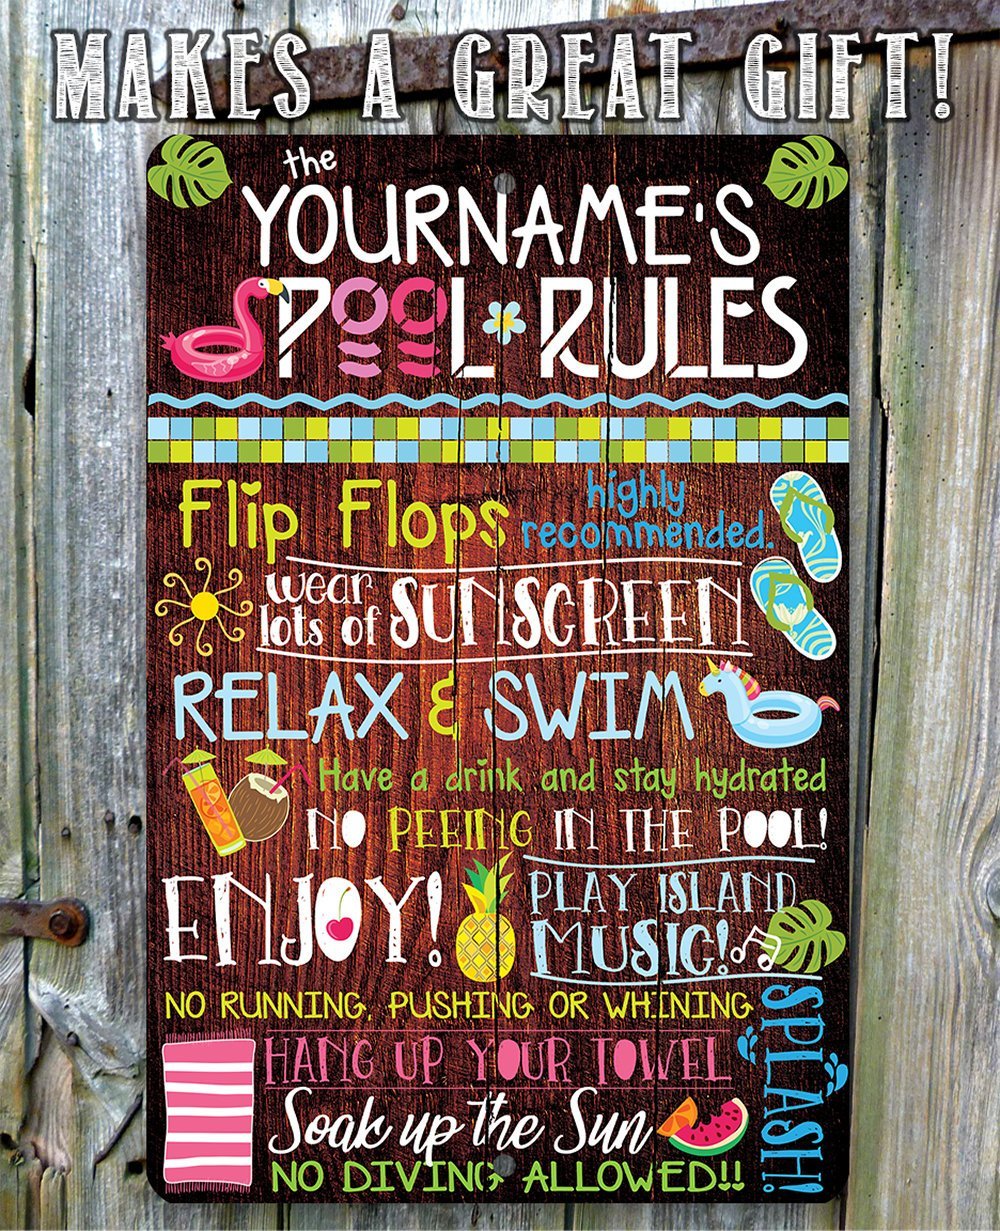 MAKES A GREAT GIFT!
the
YOURNAME'S
POOL RULES
Flip Flops highly
recommended.
wear
lots of SUNSCREEN
RELAX & SWIM
Have a drink and stay hydrated
NO PEEING IN THE POOL!
ENJOY!
PLAY ISLAND
MUSIC!
NO RUNNING, PUSHING OR WHINING
SPLASH!
HANG UP YOUR TOWEL
Soak up the Sun
NO DIVING ALLOWED!!